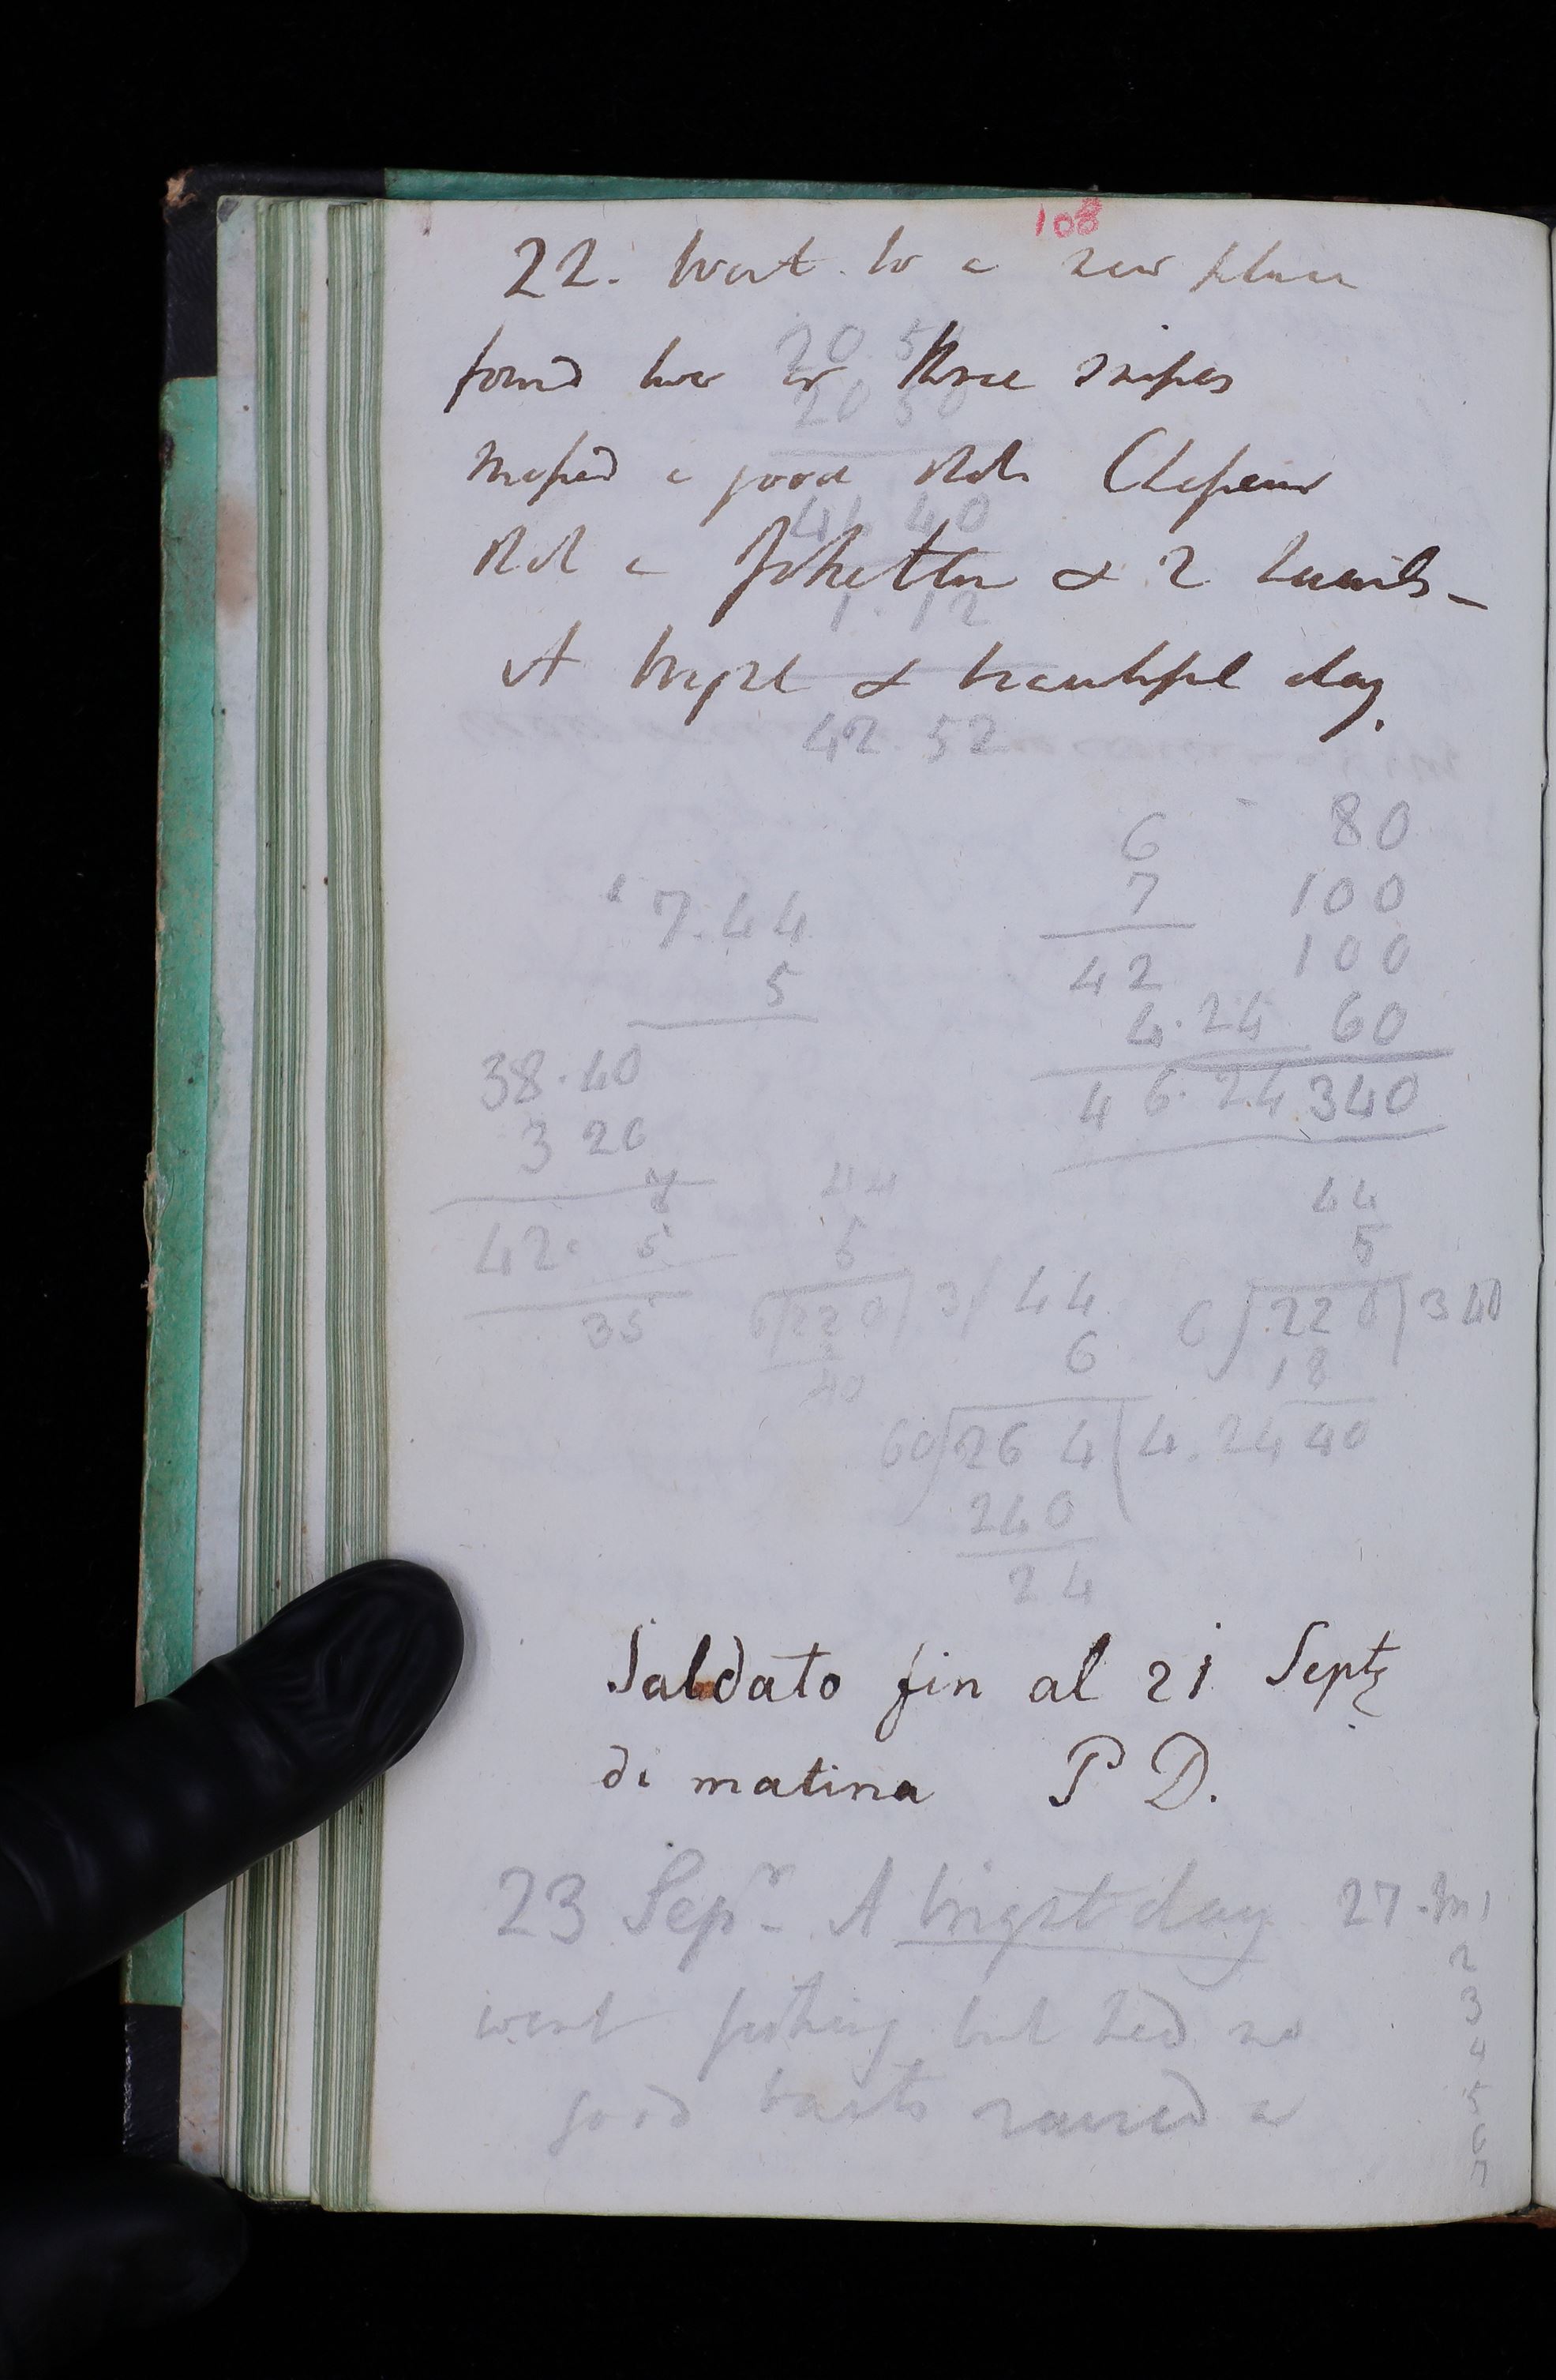 108
22. Went to a new place
20. 5
found two or three snipes
20 50
missed a good shot
41 40
shot a & 2
1. 12
A bright & beautiful day.
42. 52
6 80
7 100
7.44
42 100
5
4.24 60
38.40
46.24 340
3 20
44 44
42. 5 5 5
35 6 220 3 44 6 220 340
6 18
40
60 264 4.24 40
240
24
Saldato fin al 21 Septe
di matina P D.
23 Sepr - A bright day 27.
2
went fishing but had no 3
4
good raised a 5
6
7